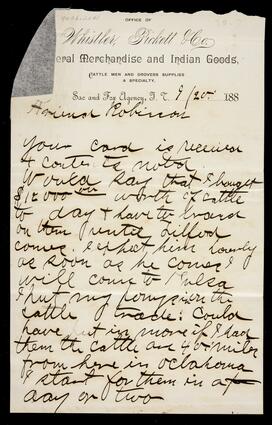 OFFICE OF
Whistler, Pickett & Co.
General Merchandise and Indian Goods,
CATTLE MEN AND DROVERS SUPPLIES
A SPECIALTY.
Sac and Fox Agency, I. T. 9/20 188
Friend Robinson
Your card is received
& contents noted
Would say that I bought
$12000 worth of cattle
to day & have to board
on them until billed
comes. I expect him hourly
as soon as he comes I
will come to Tulsa
I put my ponys in the
cattle trade. Could
have put in more if I had
them the cattle are 40 miles
from here in oklahoma
I start for them in a
day or two